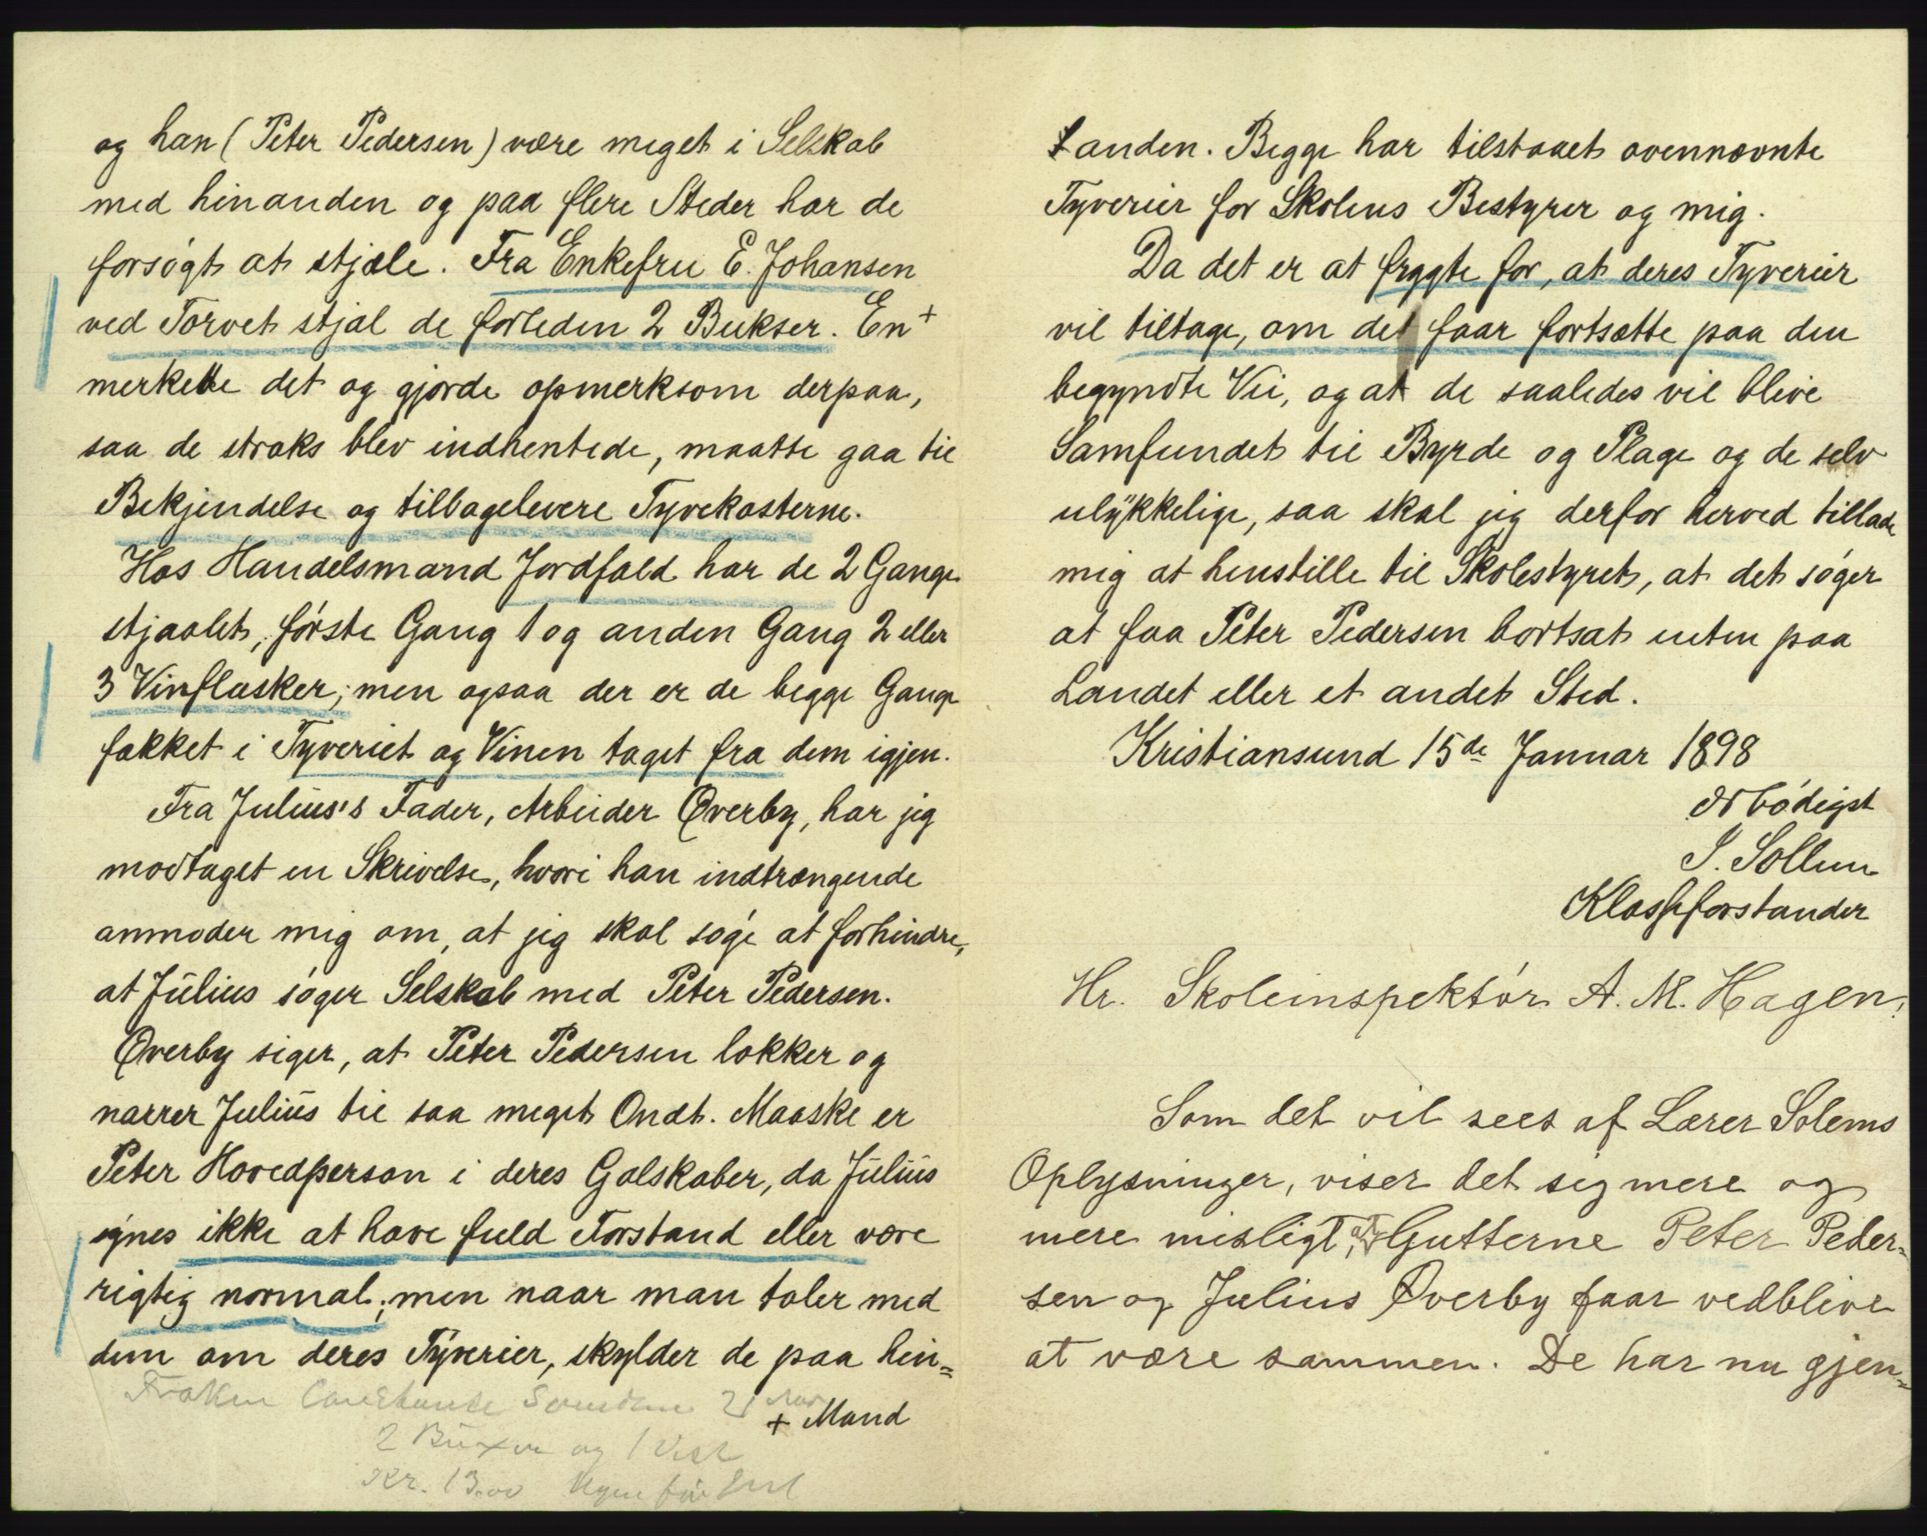 og han (Peter Pedersen) være meget i Selskab
med hinanden og paa flere Steder har de
forsøgt at stjæle. Fra Enkefru E. Johansen
ved Torvet stjal de forleden 2 Bukser. En +
merkede det og gjorde opmerksom derpaa,
saa de straks blev indhentede, maatte gaa til
Bekjendelse og tilbagelevere Tyvekosterne.
Hos Handelsmand Jordfald har de 2 Gange
stjaalet, første Gang 1 og anden Gang 2 eller
3 Vinflasker; men ogsaa der er de begge Gange
fakket i Tyveriet og Vinen taget fra dem igjen.
Fra Julius's Fader, Arbeider Øverby, har jeg
modtaget en Skrivelse, hvori han indtrængende
anmoder mig om, at jeg skal søge at forhindre,
at Julius søger Selskab med Peter Pedersen.
Øverby siger, at Peter Pedersen lokker og
narrer Julius til saa meget Ondt. Maaske er
Peter Hovedperson i deres Galskaber, da Julius
synes ikke at have fuld Forstand eller være
rigtig normal; men naar man taler med
dem om deres Tyverier, skylder de paa hin=
+ Mand
Frøken
2 Buxer og 1 Vest
Kr. 13.00
anden. Begge har tilstaaet ovennævnte
Tyverier for Skolens Bestyrer og mig.
Da det er at frygte for, at deres Tyverier
vil tiltage, om det faar fortsætte paa den
begyndte Vei, og at de saaledes vil blive
Samfundet til Byrde og Plage og de selv
ulykkelige, saa skal jeg derfor herved tillade
mig at henstille til Skolestyret, at det søger
at faa Peter Pedersen bortsat enten paa
Landet eller et andet Sted.
Kristiansund 15de Januar 1898
ærbødigst
J. Sollem
Klasseforstander
Hr. Skoleinspektør A. M. Hagen.
Som det vil sees af Lærer Solems
Oplysninger, viser det sig mere og
mere misligt, at Gutterne Peter Peder=
sen og Julius Øverby faar vedblive
at være sammen. De har nu gjen=